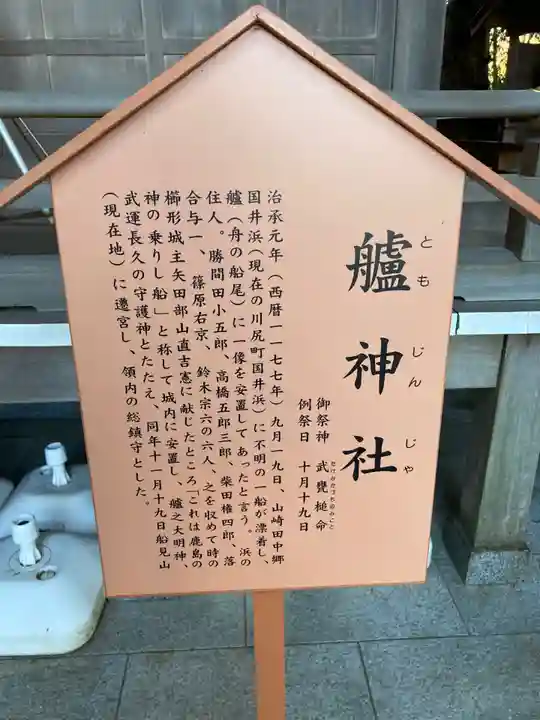 艫神社
ともじんじゃ
御祭神 武甕槌命
たけみかづちのみこと
例祭日 十月十九日
治承元年(西暦一一七七年)九月一九日、山崎田中郷
国井浜(現在の川尻町国井浜)に不明の一船が漂着し、
艫(舟の船尾)に一像を安置してあったと言う。浜の
住人。勝間田小五郎、高橋五郎三郎、柴田権四郎、落
合与一、篠原右京、鈴木宗六の六人、之を収めて時の
櫛形城主矢田部山直吉憲に献じたところ「これは鹿島の
神の乗りし船」と称して城内に安置し、艫之大明神、
武運長久の守護神とたたえ、同年十一月十九日船見山
(現在地)に遷宮し、領内の総鎮守とした。